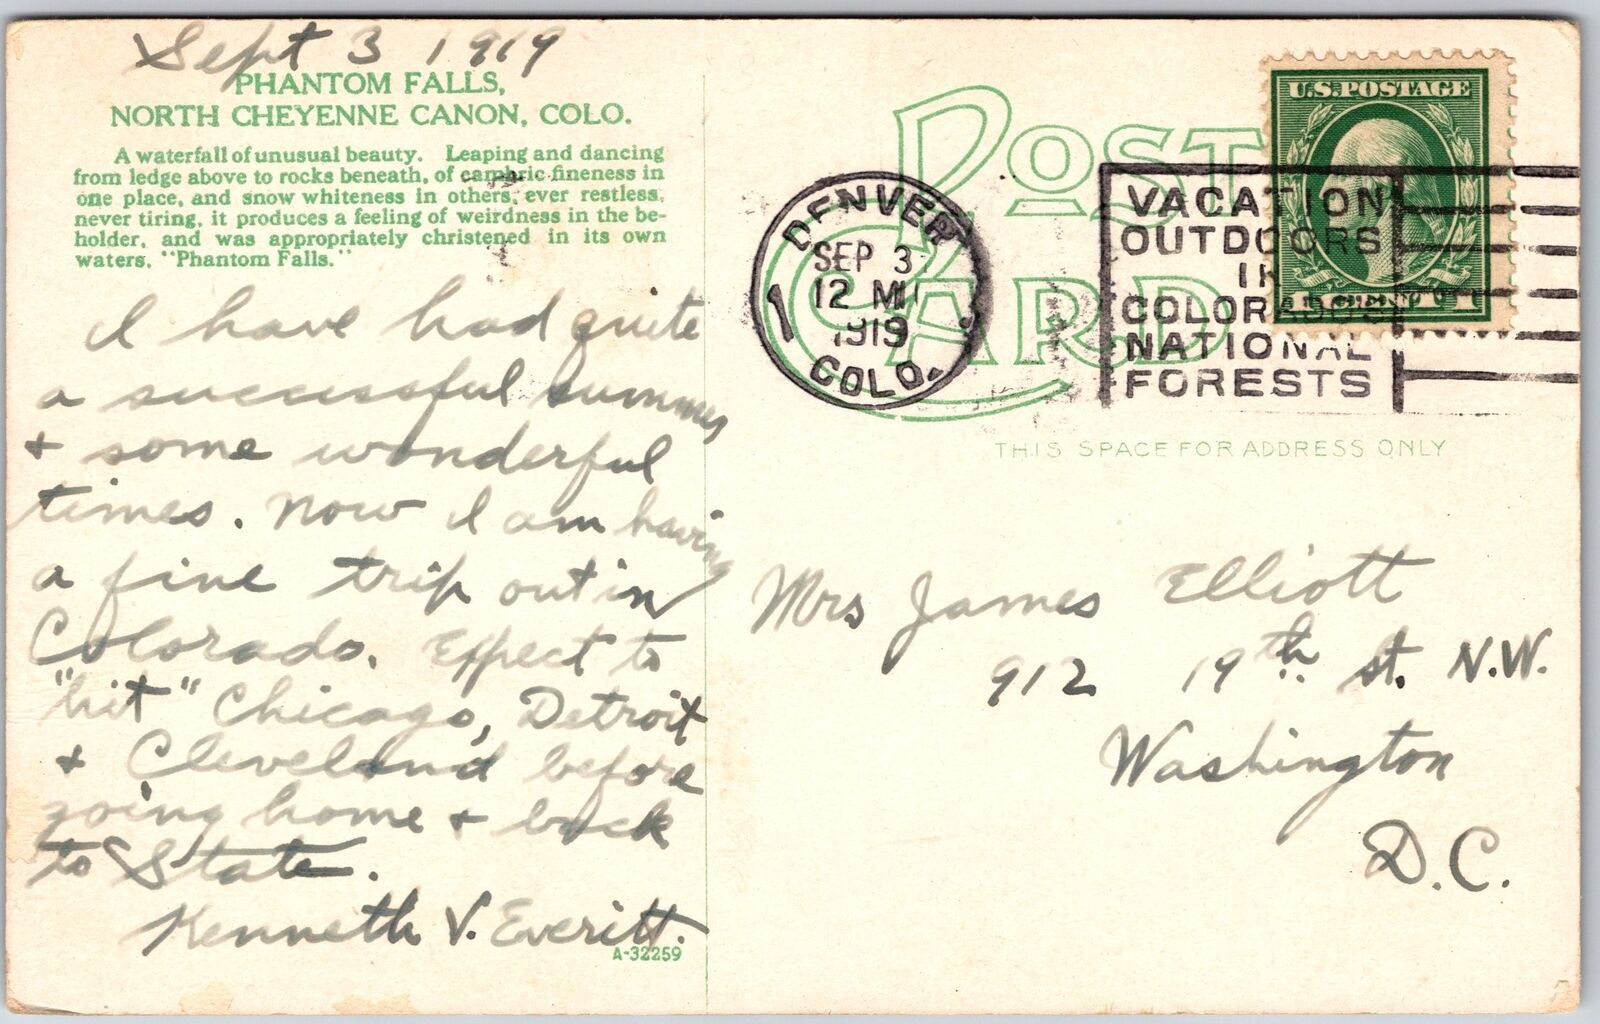 Sept 3 1919
PHANTOM FALLS,
NORTH CHEYENNE CANON, COLO.
A waterfall of unusual beauty. Leaping and dancing
from ledge above to rocks beneath, of cambric fineness in
one place, and snow whiteness in others, ever restless,
never tiring, it produces a feeling of weirdness in the be-
holder, and was appropriately christened in its own
waters, "Phantom Falls."
I have had quite
a successful summer
+ some wonderful
times. Now I am having
a fine trip out in
Colorado. Effect to
"hit" Chicago, Detroit
+ Cleveland before
going home + back
to State.
Kenneth V. Everitt.
A-32259
POST CARD
THIS SPACE FOR ADDRESS ONLY
DENVER
SEP 3
12 M
1919
COLO.
1
VACATION
OUTDOORS
IN
COLORADO'S
NATIONAL
FORESTS
U.S. POSTAGE
1 CENT 1
Mrs James Elliott
912 19th St. N.W.
Washington
D.C.